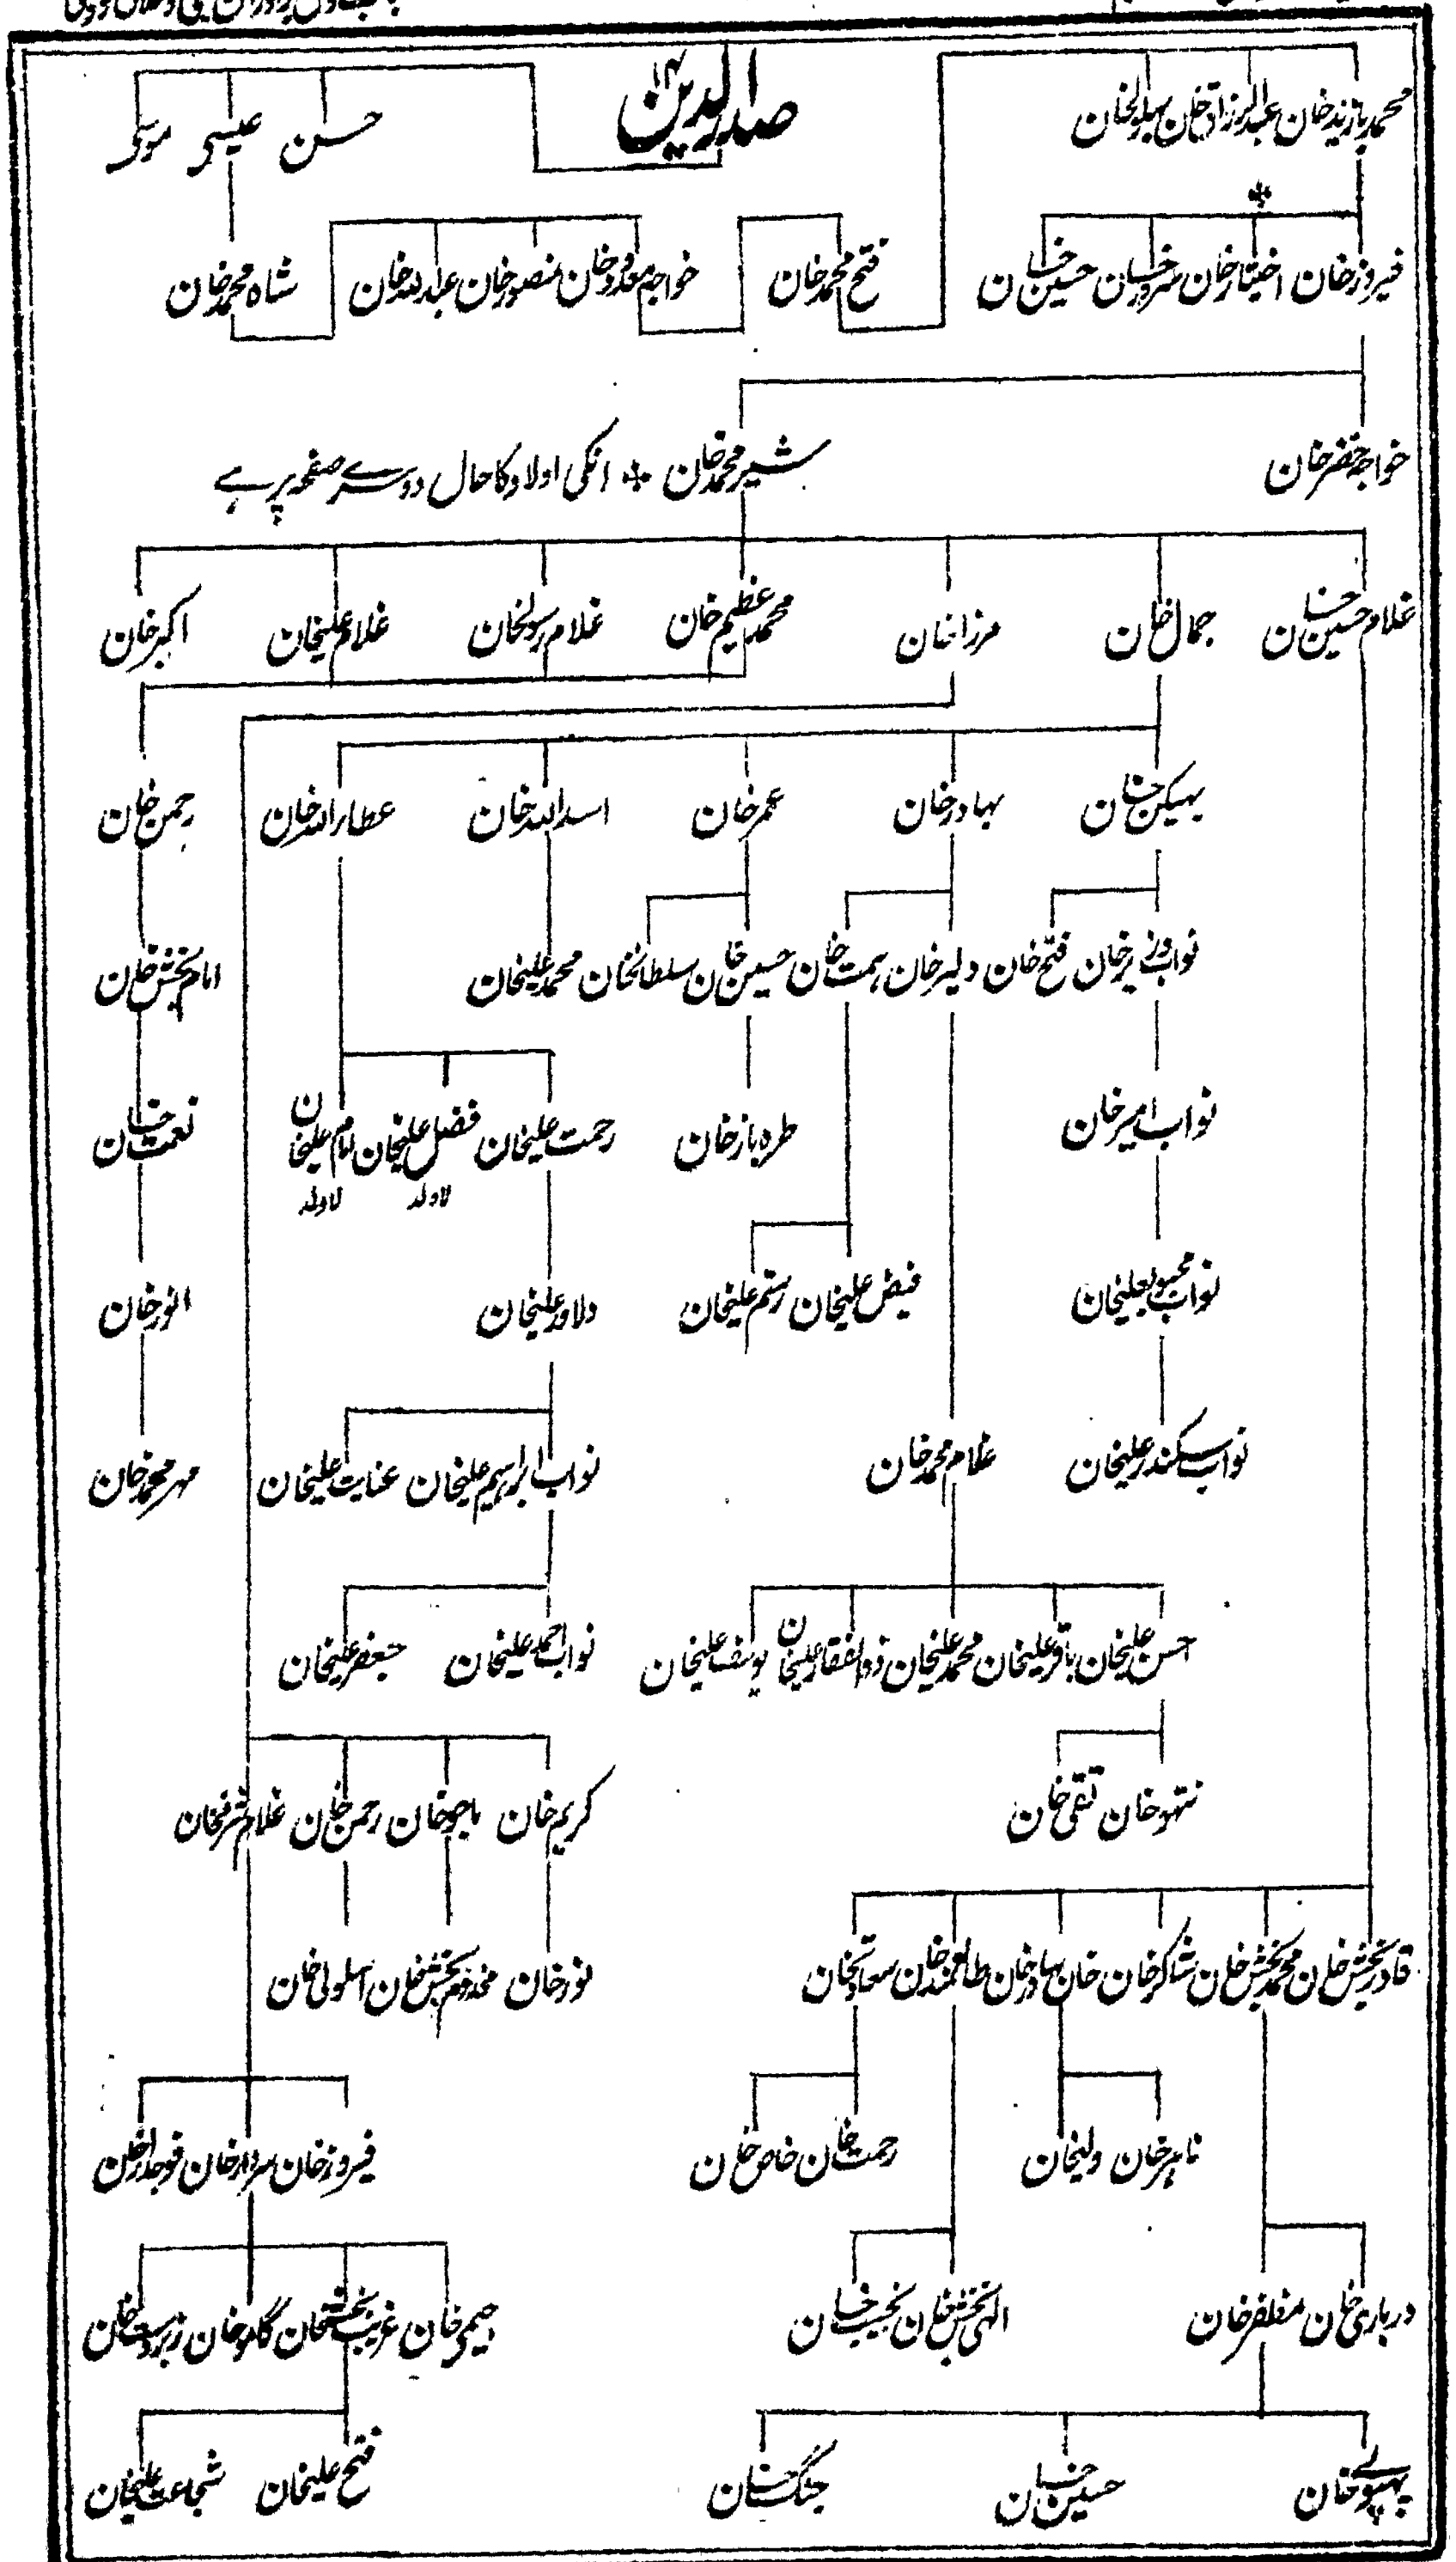 محمد بازید خان عبدالرزاق خان بہلولخان صدرالدین حسن عیسی موسی
فیروز خان اختیار خان سرور خان حسین خان فتح محمد خان خواجہ مودود خان منصور خان عبداللہ خان شاہ محمد خان
خواجہ خضر خان شیر محمد خان * انکی اولاد کا حال دوسرے صفحہ پر ہے
غلام حسین خان جمال خان مرزا خان محمد عظیم خان غلام رسولخان غلام علیخان اکبر خان
بہیکن خان بہادر خان عمر خان اسد اللہ خان عطاء اللہ خان رحمن خان
نواب وزیر خان فتح خان دلیر خان ہمت خان حسین خان سلطانخان محمد علیخان امام بخش خان
نواب امیر خان طرہ باز خان رحمت علیخان فضل علیخان امام علیخان نعمت خان
لاولد لاولد
نواب محبوب علیخان فیض علیخان رستم علیخان دلاور علیخان انور خان
نواب سکندر علیخان غلام محمد خان نواب ابراہیم علیخان عنایت علیخان مہر محمد خان
احسن علیخان باقر علیخان محمد علیخان ذوالفقار علیخان یوسف علیخان نواب احمد علیخان جعفر علیخان
نتھو خان تقی خان کریم خان باجو خان رحمن خان غلام شرف خان
قادر بخش خان محمد بخش خان شاکر خان خان بہادر خان طالعمند خان سعادتخان نور خان مخدوم بخش خان اسلولی خان
ناہر خان ولیخان رحمت خان خاص خان فیروز خان سردار خان فوجدار خان
درباری خان مظفر خان الہی بخش خان نجیب خان رحیمی خان غریب بخش خان گامو خان زبردست خان
پھپو خان حسین خان جنگ خان فتح علیخان شجاعت علیخان